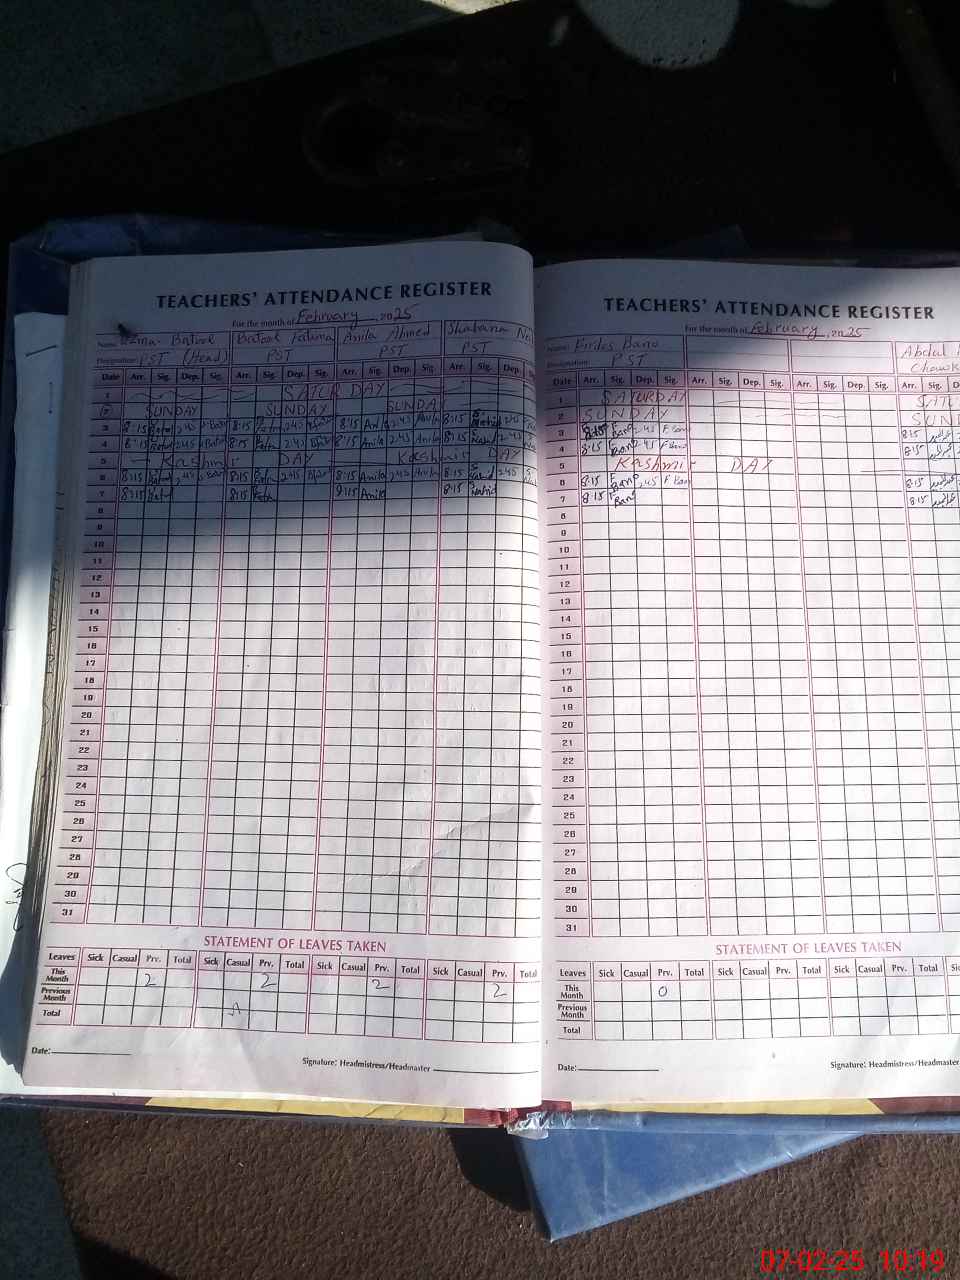 TEACHERS' ATTENDANCE REGISTER
For the month of February 2025
Name Batool Batool Fatima Anila Ahmed Shabana
Designation PST (Head) PST PST PST
Date Arr. Sig. Dep. Sig. Arr. Sig. Dep. Sig. Arr. Sig. Dep. Sig. Arr. Sig. Dep.
1 SATURDAY
2 SUNDAY SUNDAY SUNDAY
3 8:15 2:45 8:15 2:45 8:15 Anila 2:45 Anila 8:15 2:45
4 8:15 2:45 8:15 2:45 8:15 Anila 2:45 Anila 8:15 2:45
5 Kashmir DAY Kashmir DAY
6 8:15 2:45 8:15 2:45 8:15 Anila 2:45 Anila 8:15 2:45
7 8:15 8:15 8:15 Anila 8:15
8
9
10
11
12
13
14
15
16
17
18
19
20
21
22
23
24
25
26
27
28
29
30
31
STATEMENT OF LEAVES TAKEN
Leaves Sick Casual Prv. Total Sick Casual Prv. Total Sick Casual Prv. Total Sick Casual Prv. Total
This Month 2 2 2 2
Previous Month
Total
Date:
Signature: Headmistress/Headmaster
TEACHERS' ATTENDANCE REGISTER
For the month of February, 2025
Name: Firdos Bano Abdul
Designation: PST
Date Arr. Sig. Dep. Sig. Arr. Sig. Dep. Sig. Arr. Sig. Dep. Sig. Arr. Sig. Dep.
1 SATURDAY
2 SUNDAY SUND
3 8:15 F. Bano 2:45 F. Bano 8:15
4 8:15 F. Bano 2:45 F. Bano 8:15
5 Kashmir DAY
6 8:15 F. Bano 2:45 F. Bano 8:15
7 8:15 F. Bano 8:15
8
9
10
11
12
13
14
15
16
17
18
19
20
21
22
23
24
25
26
27
28
29
30
31
STATEMENT OF LEAVES TAKEN
Leaves Sick Casual Prv. Total Sick Casual Prv. Total Sick Casual Prv. Total
This Month 0
Previous Month
Total
Date:
Signature: Headmistress/Headmaster
07-02-25 10:19